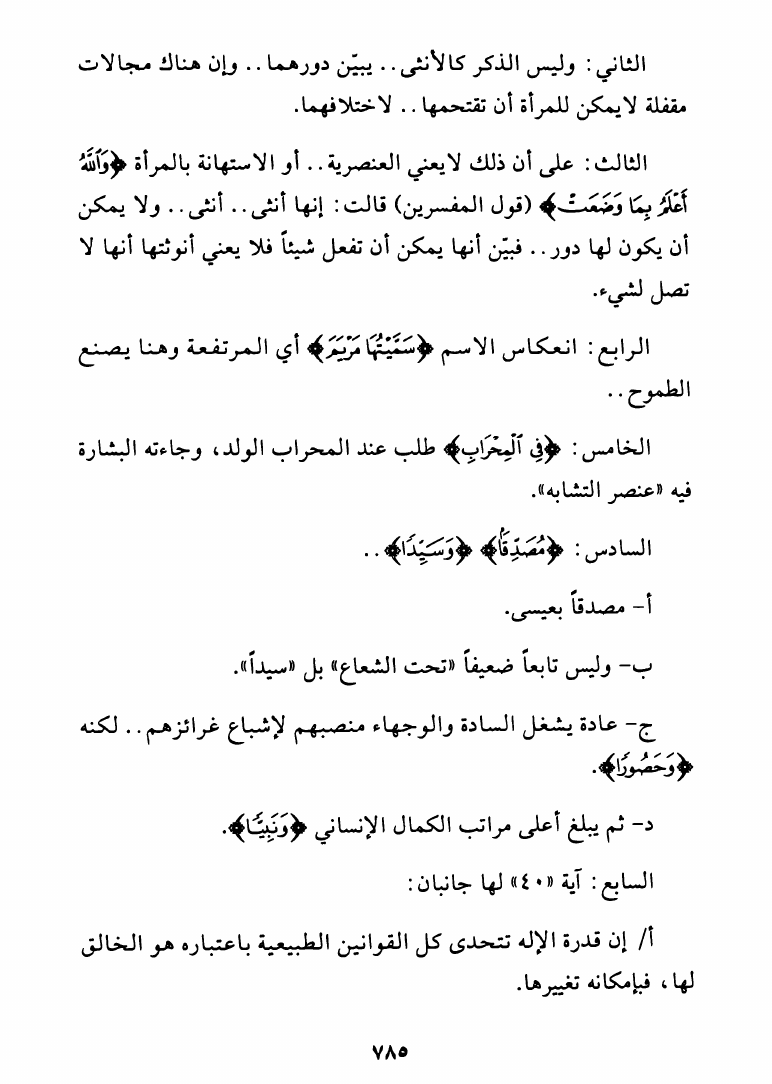 الثاني: وليس الذكر كالأنثى.. يبيّن دورهما.. وإن هناك مجالات
مقفلة لايمكن للمرأة أن تقتحمها.. لاختلافهما.
الثالث: على أن ذلك لايعني العنصرية.. أو الاستهانة بالمرأة ﴿وَٱللَّهُ
أَعْلَمُ بِمَا وَضَعَتْ﴾ (قول المفسرين) قالت: إنها أنثى.. أنثى.. ولا يمكن
أن يكون لها دور.. فبيّن أنها يمكن أن تفعل شيئاً فلا يعني أنوثتها أنها لا
تصل لشيء.
الرابع: انعكاس الاسم ﴿سَمَّيْتُهَا مَرْيَمَ﴾ أي المرتفعة وهنا يصنع
الطموح..
الخامس: ﴿فِي ٱلْمِحْرَابِ﴾ طلب عند المحراب الولد، وجاءته البشارة
فيه «عنصر التشابه».
السادس: ﴿مُصَدِّقًۢا﴾ ﴿وَسَيِّدًا﴾..
أ- مصدقاً بعيسى.
ب- وليس تابعاً ضعيفاً «تحت الشعاع» بل «سيداً».
ج- عادة يشغل السادة والوجهاء منصبهم لإشباع غرائزهم.. لكنه
﴿وَحَصُورًا﴾.
د- ثم يبلغ أعلى مراتب الكمال الإنساني ﴿وَنَبِيًّا﴾.
السابع: آية «٤٠» لها جانبان:
أ/ إن قدرة الإله تتحدى كل القوانين الطبيعية باعتباره هو الخالق
لها، فبإمكانه تغييرها.
٧٨٥